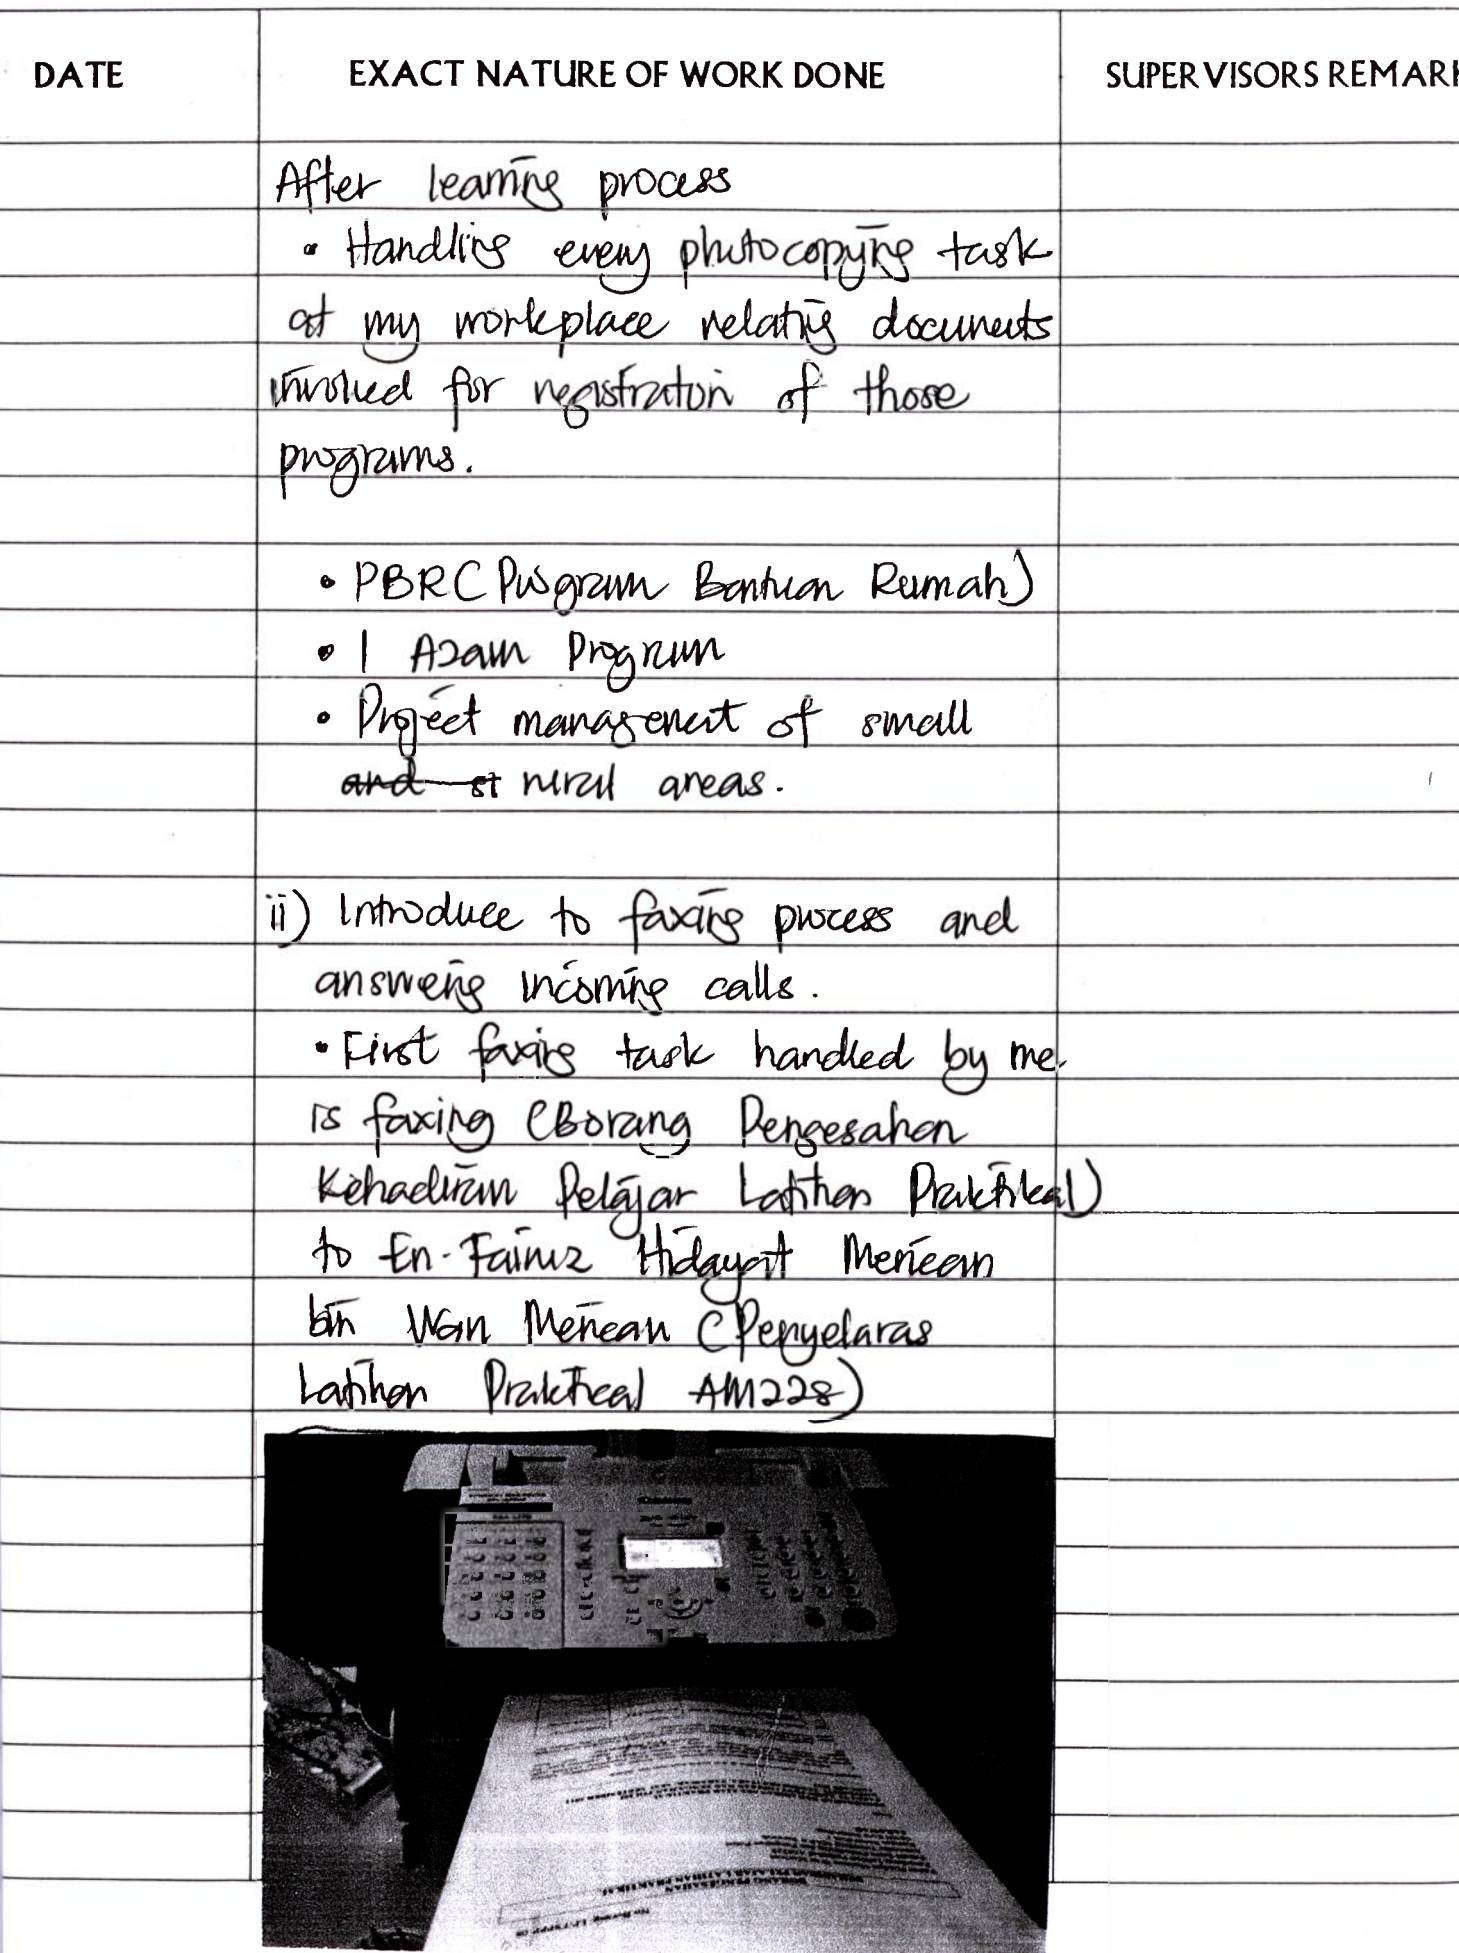 DATE EXACT NATURE OF WORK DONE SUPERVISORS REMARK
After learning process
• Handling every photocopying task
at my workplace relating documents
involved for registration of those
programs.
• PBR (Program Bantuan Rumah)
• 1 Azam Program
• Project management of small
and st rural areas.
ii) Introduce to faxing process and
answering incoming calls.
• First faxing task handled by me
is faxing (Borang Pengesahan
Kehadiran Pelajar Latihan Praktikal)
to En. Fairuz Hidayat Merican
bin Wan Merican (Penyelaras
Latihan Praktical AM228)
BORANG PENGESAHAN
KEHADIRAN PELAJAR LATIHAN PRAKTIKAL